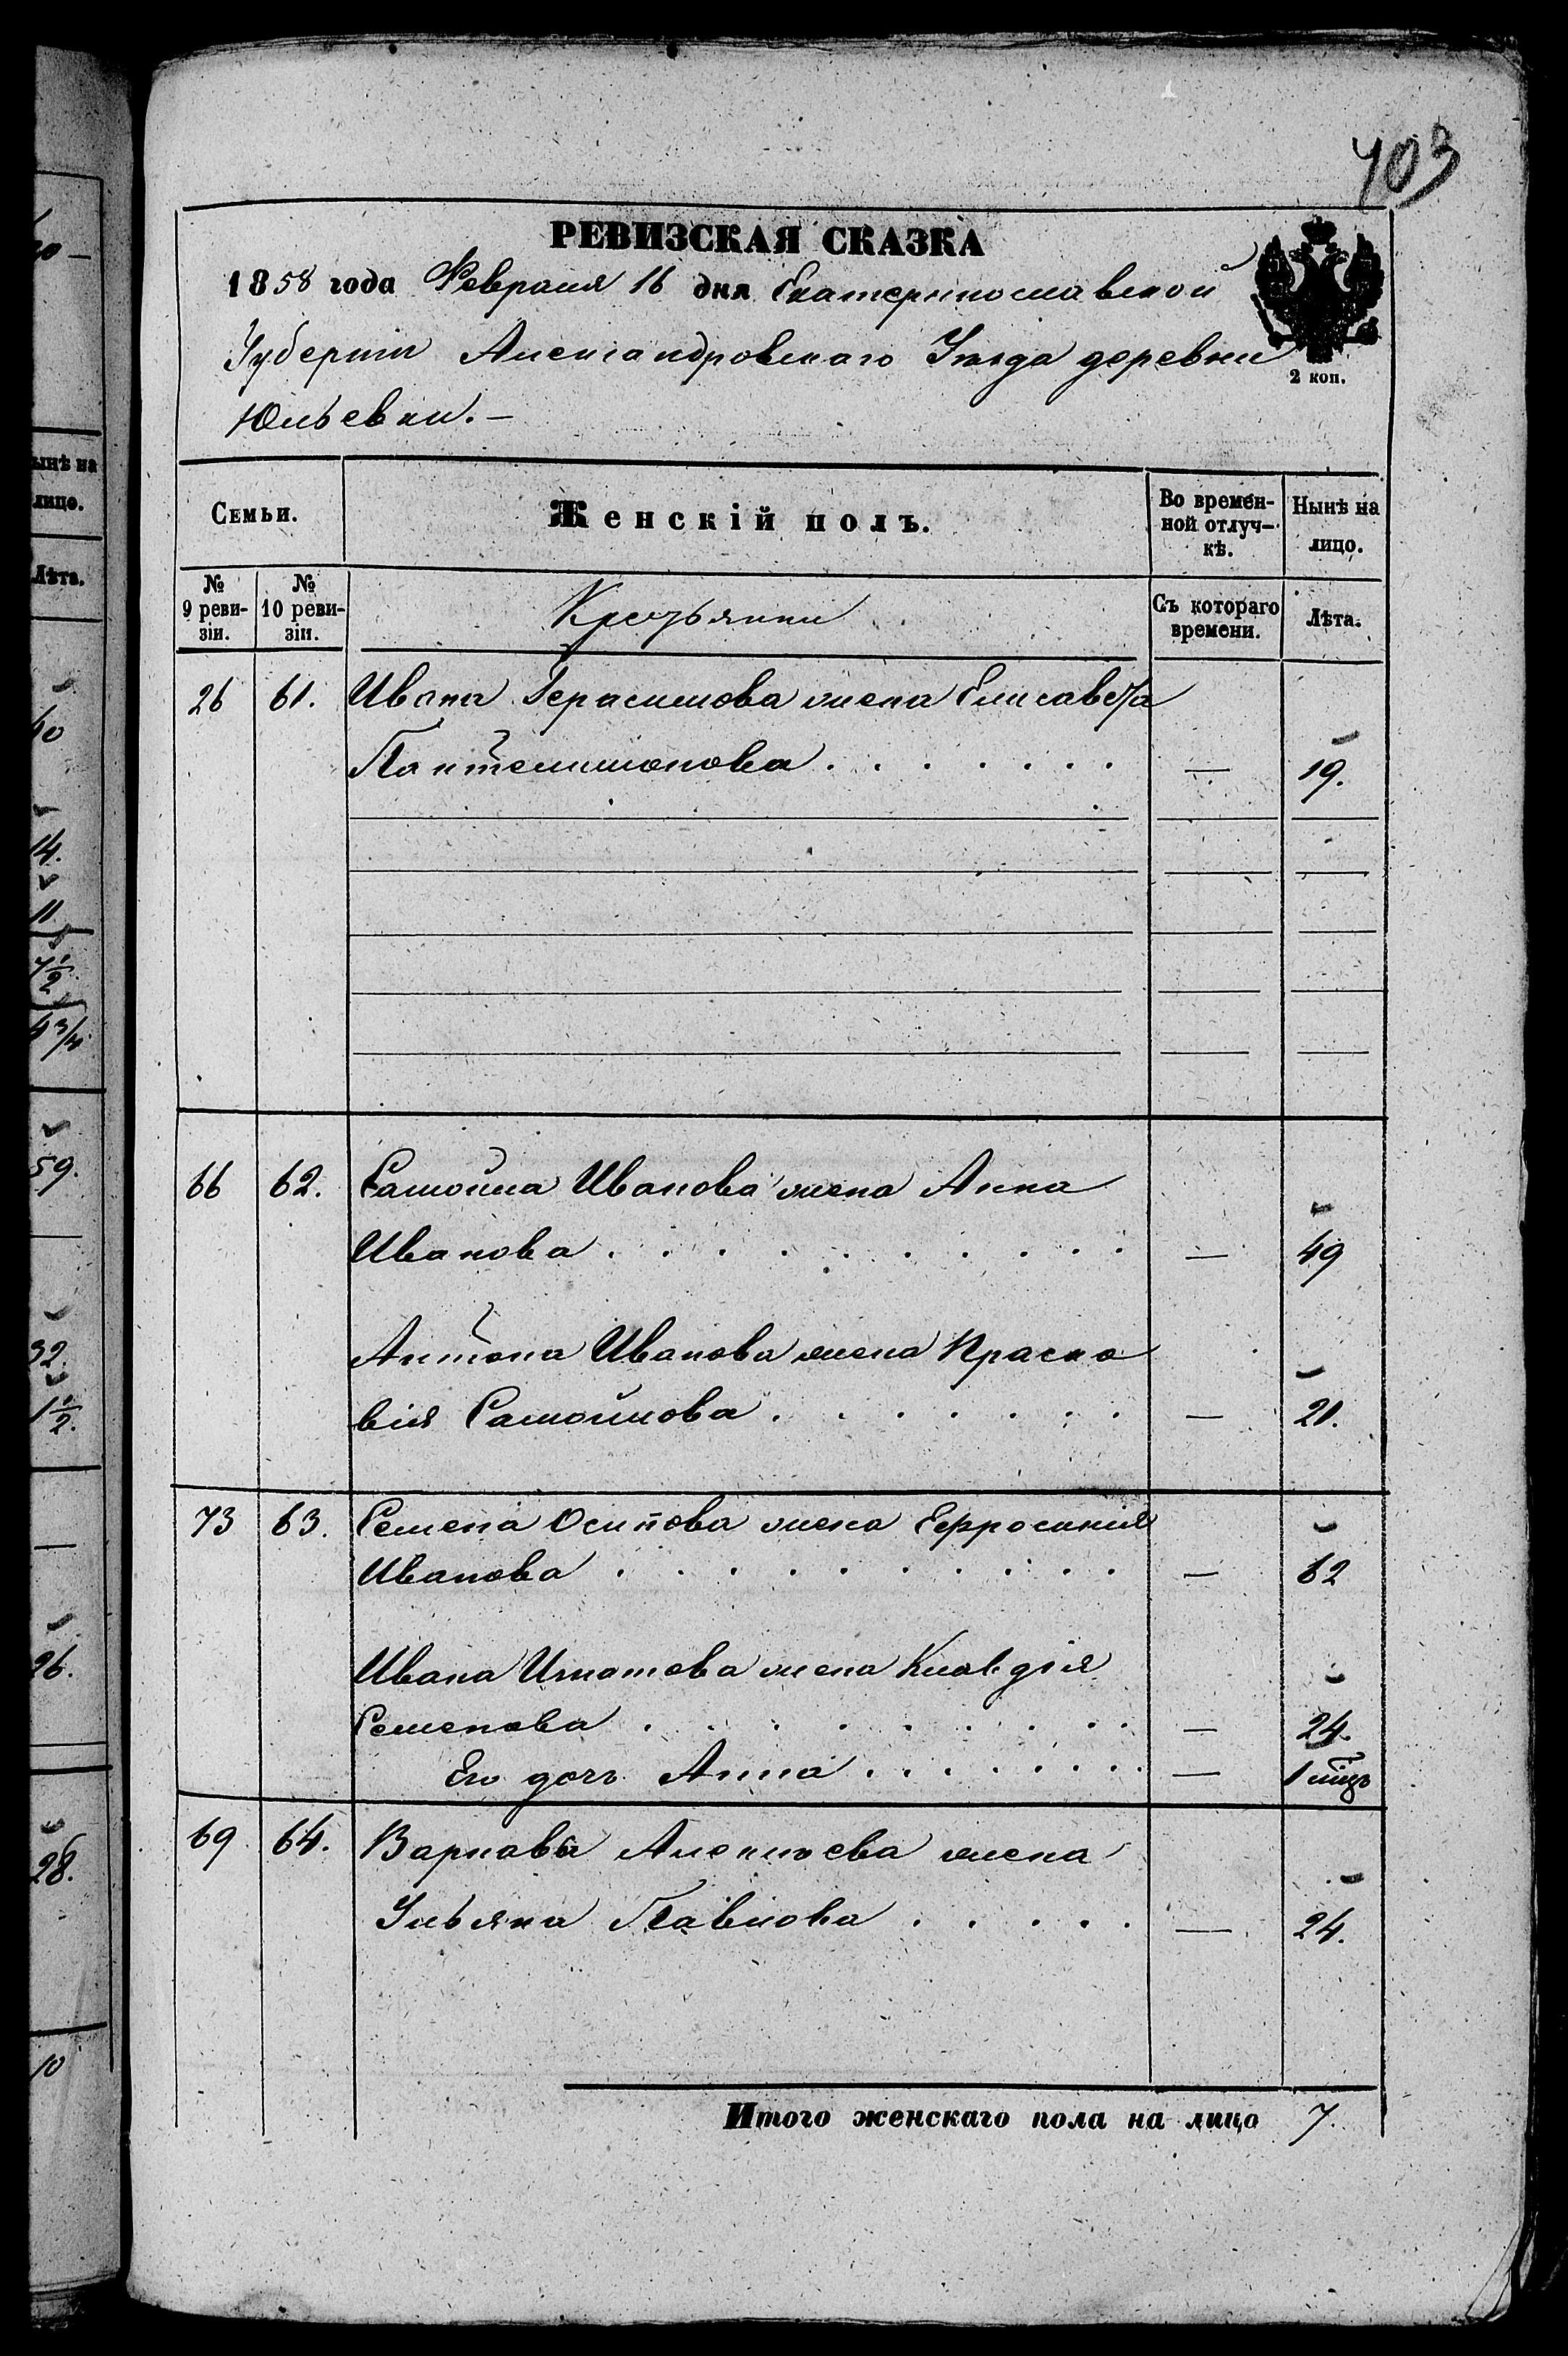 403
РЕВИЗСКАЯ СКАЗКА
1858 года Февраля 16 дня Екатеринославской
Губерніи Александровскаго Уѣзда деревни
Юльевки.—
2 коп.
Семьи.
Женскій полъ.
Во времен-
ной отлуч-
кѣ.
Нынѣ на
лицо.
№
9 реви-
зіи.
№
10 реви-
зіи.
Крестьянки
Съ котораго
времени.
Лѣта.
26 61. Ивана Герасимова жена Елисавета
Пантелимонова . . . . . . . — 19.
66 62. Самойла Иванова жена Анна
Иванова . . . . . . . . . — 49
Антона Иванова жена Праско
вія Самойлова . . . . . . . — 21.
73 63. Семена Осипова жена Ефросинія
Иванова . . . . . . . . . . — 62
Ивана Игнатова жена Клавдія
Семенова . . . . . . . . . — 24.
Его дочь Анна . . . . . . . . — 1 мѣцъ
69 64. Варнавы Алексѣева жена
Ульяна Павлова . . . . . — 24.
Итого женскаго пола на лицо 7.
ынѣ на
лицо.
Лѣта.
40
14.
11
7 1/2
4 3/4
59.
32.
1 1/2.
26.
28.
10